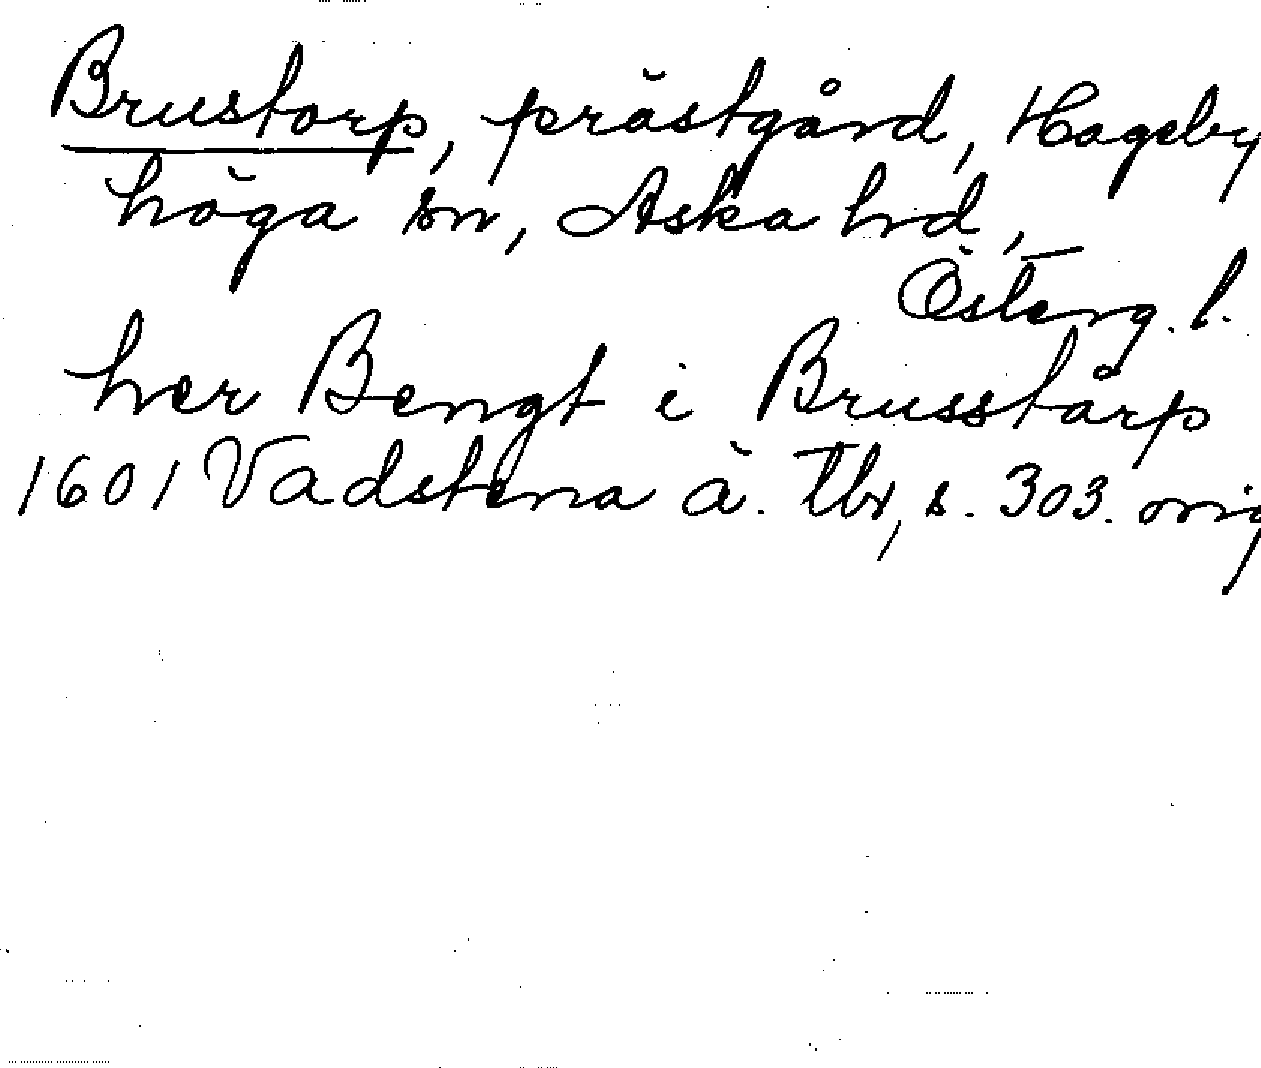 Brustorp, prästgård, Hageby
höga sn, Aska hd,
Österg. l.
her Bengt i Brusstårp
1601 Vadstena ä. Tbr, s. 303. orig